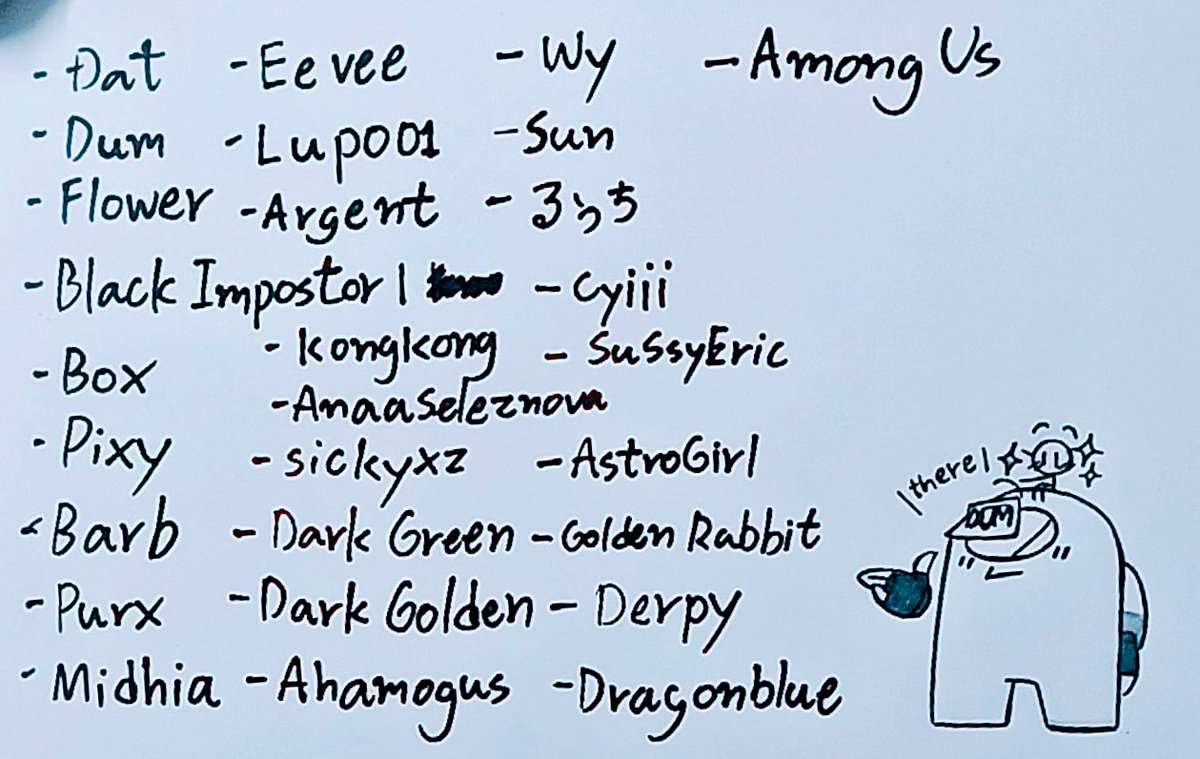 - Đat - Eevee - Wy - Among Us
- Dum - Lup001 - Sun
- Flower - Argent - るっち
- Black Impostor 1 - Cyiii
- Box - kongkong - SuSsyEric
- AnaaSeleznova
- Pixy - sickyxz - AstroGirl
- Barb - Dark Green - Golden Rabbit
- Purx - Dark Golden - Derpy
- Midhia - Ahamogus - Dragonblue
\there/
DUM